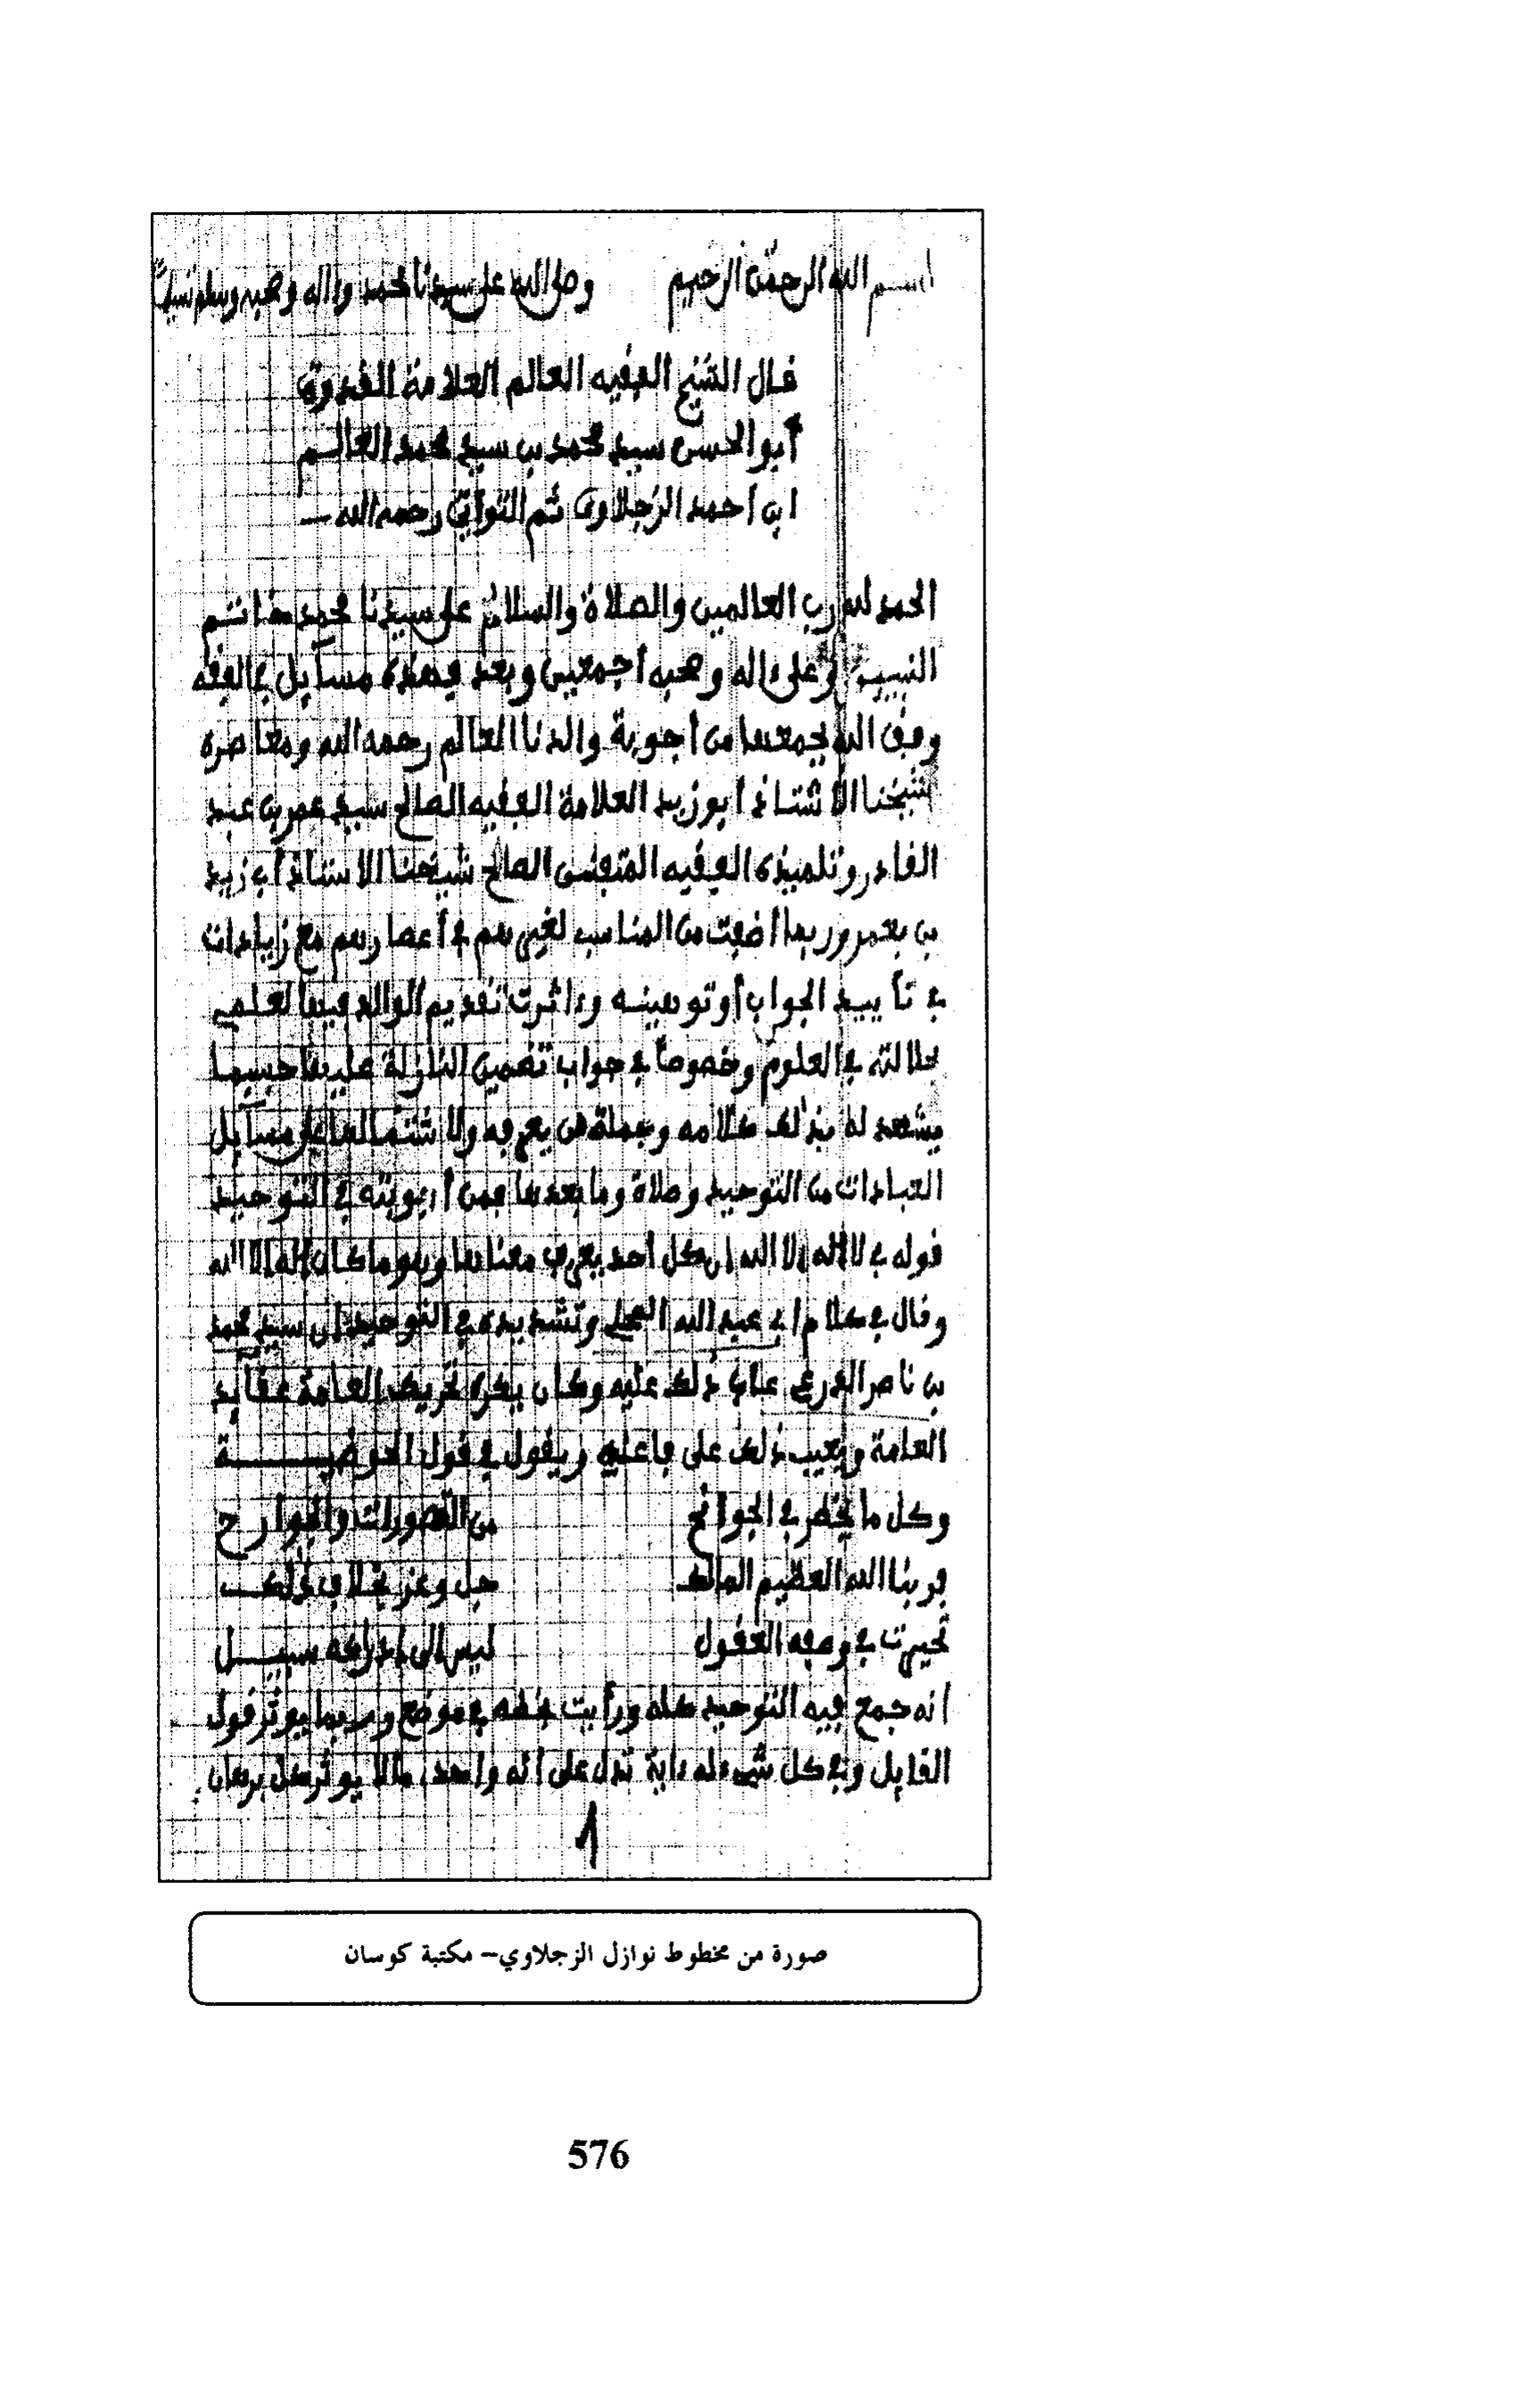 بسم الله الرحمن الرحيم وصلى الله على سيدنا محمد واله وصحبه وسلم تسليما
قال الشيخ الفقيه العالم العلامة القدوة
أبو الحسن سيد محمد بن سيد محمد العالم
ابن أحمد الزجلاوي ثم التواتي رحمه الله
الحمد لله رب العالمين والصلاة والسلام على سيدنا محمد خاتم
النبيين وعلى ءاله وصحبه أجمعين وبعد فهذه مسآيل في الفقه
وفق الله لجمعها من أجوبة والدنا العالم رحمه الله ومعاصره
شيخنا الأستاذ أبو زيد العلامة الفقيه الصالح سيد عمر بن عبد
القادر وتلميذه الفقيه المتفنن الصالح شيخنا الاستاذ أبي زيد
بن يعمر وربما أضفت من المناسب لغيرهم في أعصارهم مع زيادات
في تأييد الجواب أو توهينه وءاثرت تقديم الوالد فيها لعلمي
بجلالته في العلوم وخصوصا في جواب تضمين النازلة عليها حسبما
يشهد له بذلك كلامه وجملة من يعرفه ولاشتمالها على مسآيل
العبادات من التوحيد وصلاة وما بعدها فمن أجوبته في التوحيد
قوله في لا إله إلا الله إن كل أحد يعرف معناها وهو ما كان إله إلا الله
وقال في كلام ابي عبد الله وتشديده في التوحيد إن سيد محمد
بن ناصر الدرعي عاب ذلك عليه وكان يكره تحريك العامة عقآيد
العامة ويعيب ذلك على فاعليه ويقول في قول الحوضية
وكل ما يخطر في الجوانح من التصورات والجوارح
فربنا الله العظيم المالك جل وعز بخلاف ذلك
تحيرت في وصفه العقول ليس إلى إدراكه سبيل
أنه جمع فيه التوحيد كله ورأيت بخطه في موضع وربما يوثر قول
القايل وفي كل شيء له ءاية تدل على أنه واحد، ما لا يوثر كل برهان
1
صورة من مخطوط نوازل الزجلاوي– مكتبة كوسان
576